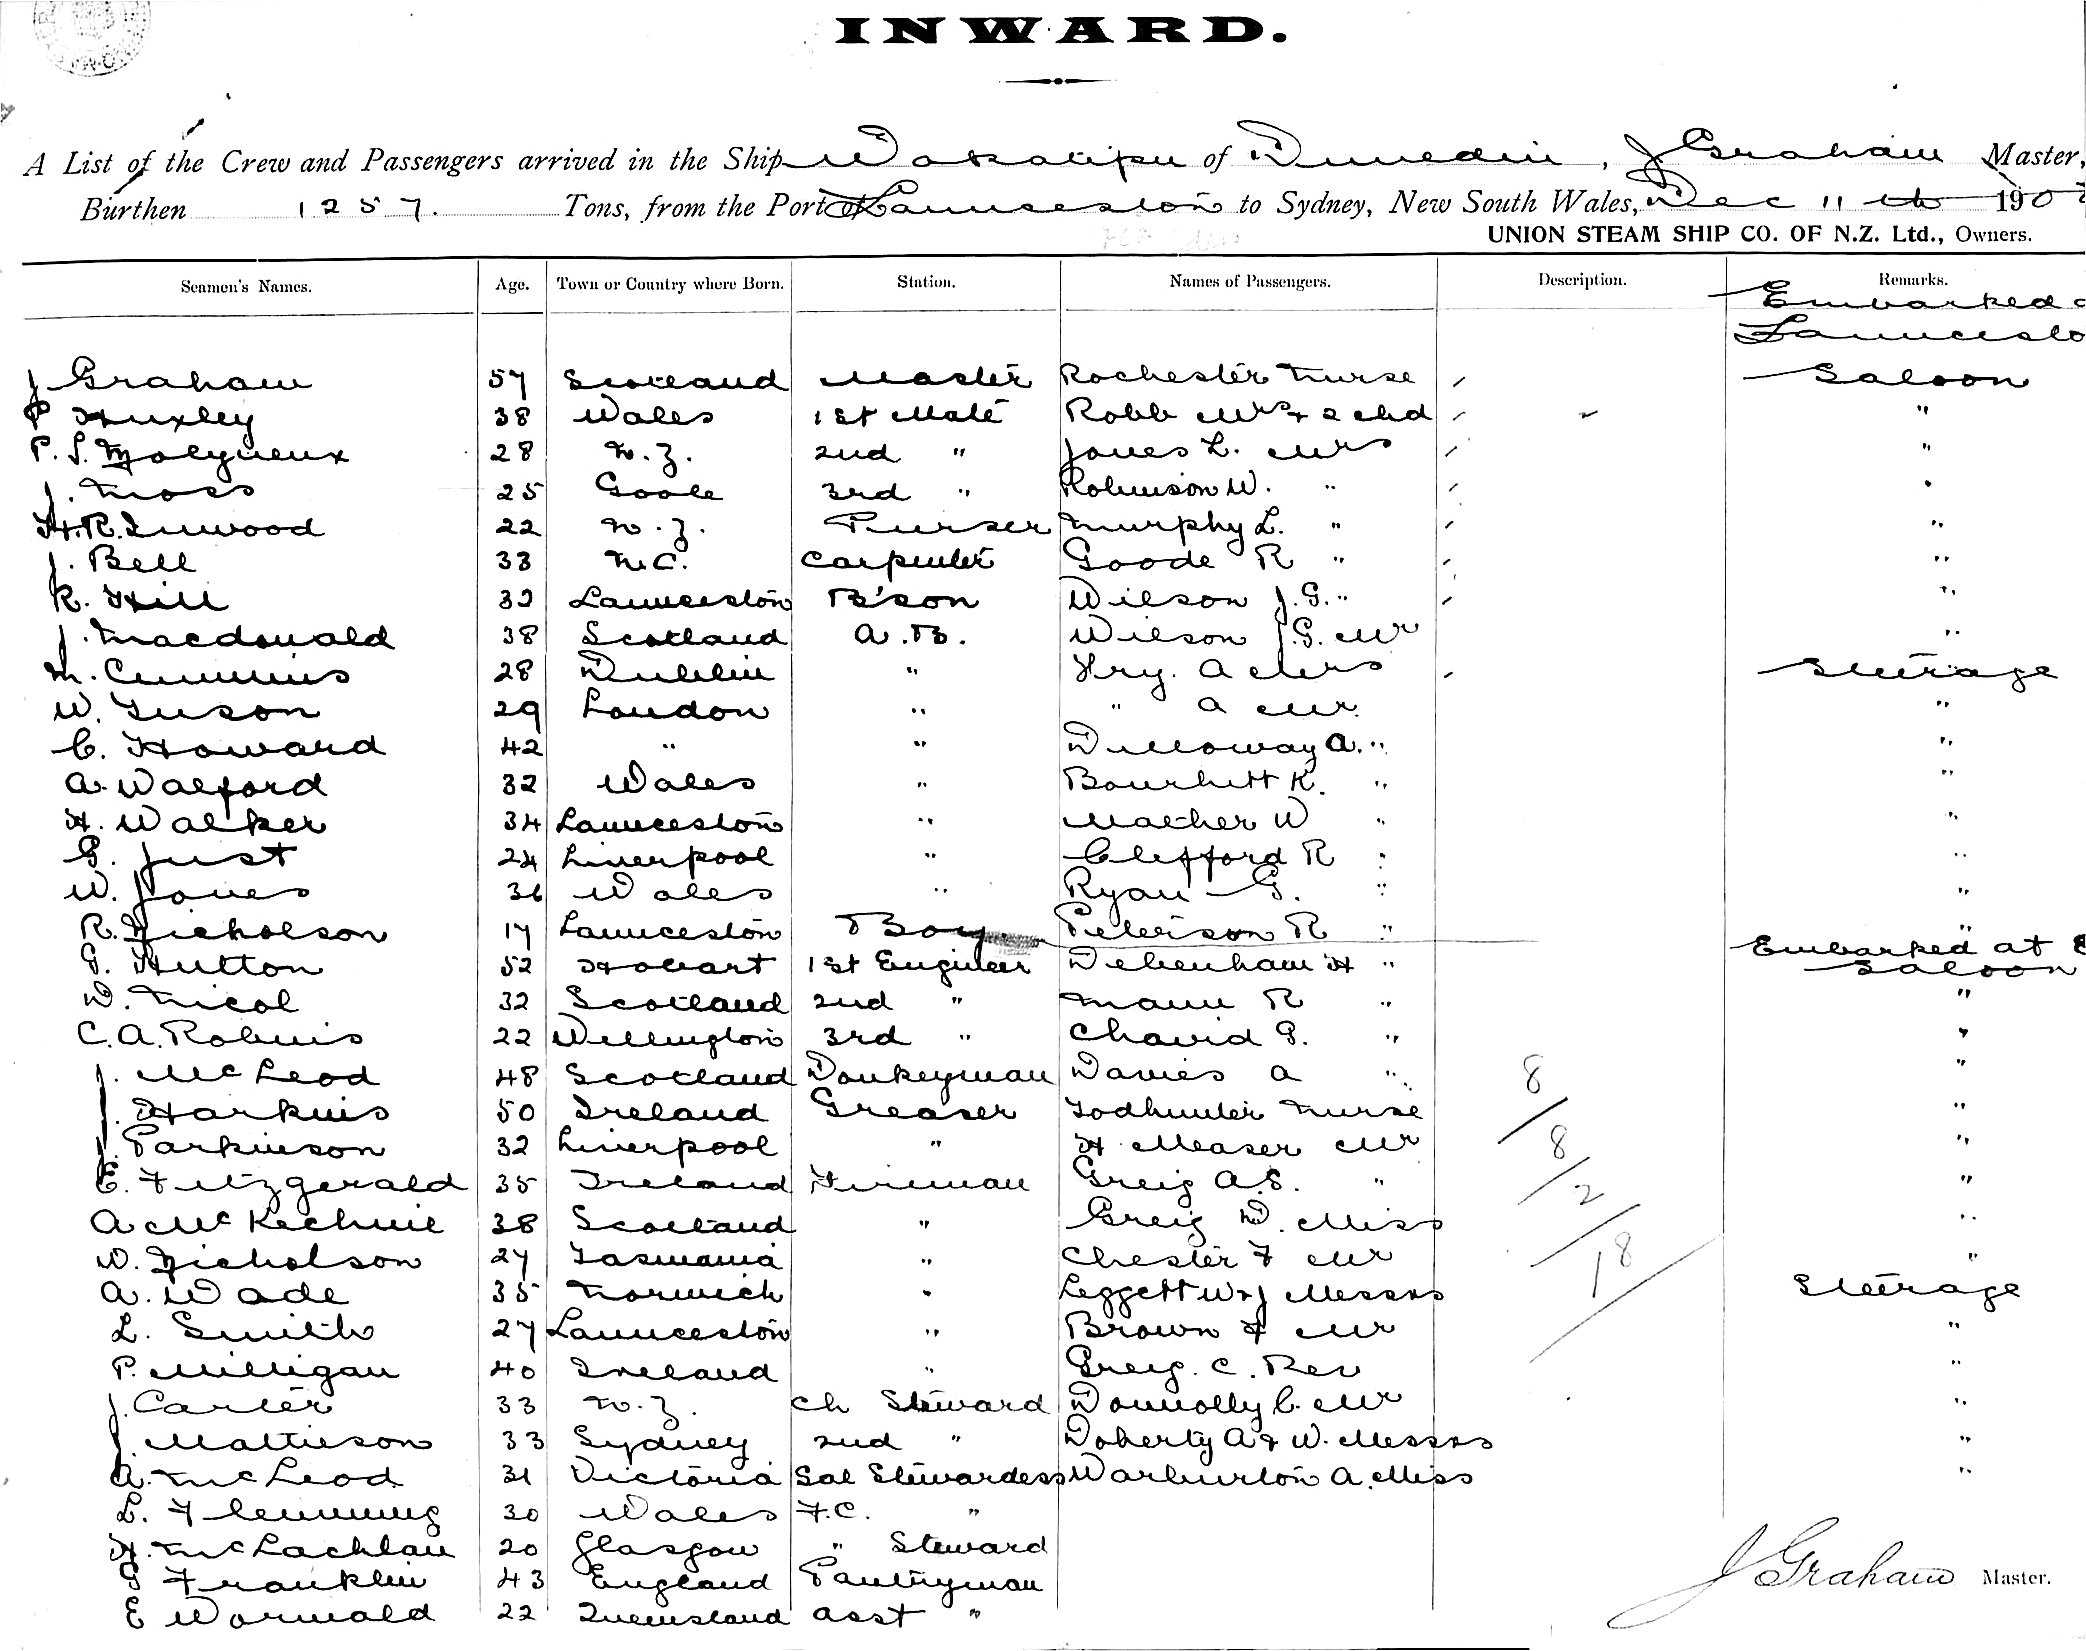 INWARD.
A List of the Crew and Passengers arrived in the Ship Wakatipu of Dunedin, J Graham Master,
Burthen 1257. Tons, from the Port of Launceston to Sydney, New South Wales, Dec 11th 190
UNION STEAM SHIP CO. OF N.Z. Ltd., Owners.
Seamen's Names. Age. Town or Country where Born. Station. Names of Passengers. Description. Remarks.
Embarked
Launcesto
J Graham 57 Scotland Master Rochester Nurse Saloon
P Huxley 38 Wales 1st Mate Robb Mrs + 2 chd "
P. S. Molyneux 28 N.Z. 2nd " Jones L. Mrs "
J. Moss 25 Goole 3rd " Robinson W. " "
H.R. Inwood 22 N.Z. Purser Murphy L. " "
J. Bell 33 N.C. Carpenter Goode R " "
R. Hill 32 Launceston B'son Wilson J.G. " "
J. Macdonald 38 Scotland A.B. Wilson J.G. Mr "
M. Cummins 28 Dublin " Fry. A Mrs Steerage
W. Tuson 29 London " " A Mr. "
C. Howard 42 " " Dilloway A. " "
A. Walford 32 Wales " K. " "
H. Walker 34 Launceston " Mather W " "
G. Just 24 Liverpool " Clifford R " "
W. Jones 36 Wales " Ryan G. " "
R. Nicholson 17 Launceston Boy Peterson R " "
Embarked at E
G. Hutton 52 Hobart 1st Engineer Debenham H " Saloon
D. Nicol 32 Scotland 2nd " Mann R " "
C.A. Robins 22 Wellington 3rd " Chavid G. " "
J. McLeod 48 Scotland Donkeyman Davies A " "
J. Harkins 50 Ireland Greaser Todhunter Nurse "
J. Parkinson 32 Liverpool " H. Measer Mr "
E. Fitzgerald 35 Ireland Fireman Greig A.S. " "
A McKechnie 38 Scotland " Greig D. Miss "
W. Nicholson 27 Tasmania " Chester F Mr "
A. Wade 35 Norwich " Leggett W + J Messrs Steerage
L. Smith 27 Launceston " Brown F Mr "
P. Milligan 40 Ireland " Greig. C. Rev "
J. Carter 33 N.Z. Ch Steward Donnolly C. Mr "
J. Mattieson 33 Sydney 2nd " Doherty A + W. Messrs "
A. McLeod 31 Victoria Sal Stewardess Warburton A. Miss "
L. Flemming 30 Wales F.C. "
H. McLachlan 20 Glasgow " Steward
G Franklin 43 England Pantryman
E Wormald 22 Queensland Asst "
8
8
2
18
J Graham Master.